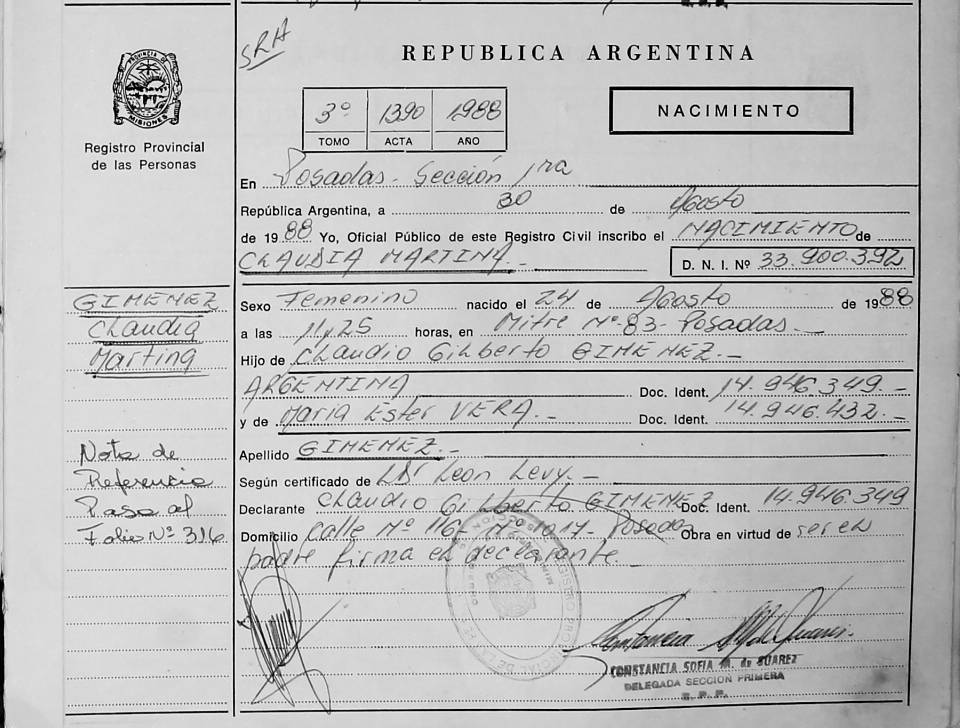 SRA
REPUBLICA ARGENTINA
PROVINCIA DE
MISIONES
Registro Provincial
de las Personas
3º 1390 1988
TOMO ACTA AÑO
NACIMIENTO
En Posadas - Sección 1ra
República Argentina, a 30 de Agosto
de 1988 Yo, Oficial Público de este Registro Civil inscribo el NACIMIENTO de
CLAUDIA MARTINA.-
D. N. I. Nº 33.900.392
GIMENEZ
Claudia
Martina
Sexo Femenino nacido el 24 de Agosto de 1988
a las 11y25 horas, en Mitre Nº 83 - Posadas.-
Hijo de Claudio Gilberto GIMENEZ.-
ARGENTINA Doc. Ident. 14.946.349.-
y de Maria Ester VERA.- Doc. Ident. 14.946.432.-
Apellido GIMENEZ.-
Según certificado de Dr Leon Levy.-
Declarante Claudio Gilberto GIMENEZ Doc. Ident. 14.946.349
Domicilio Calle Nº 116 - Nº 1017 - Posadas Obra en virtud de ser el
padre firma el declarante.-
Nota de
Referencia
Pasa al
Folio Nº 316
REGISTRO PROVINCIAL DE LAS
CONSTANCIA SOFIA M. de SUAREZ
DELEGADA SECCION PRIMERA
R. P. P.